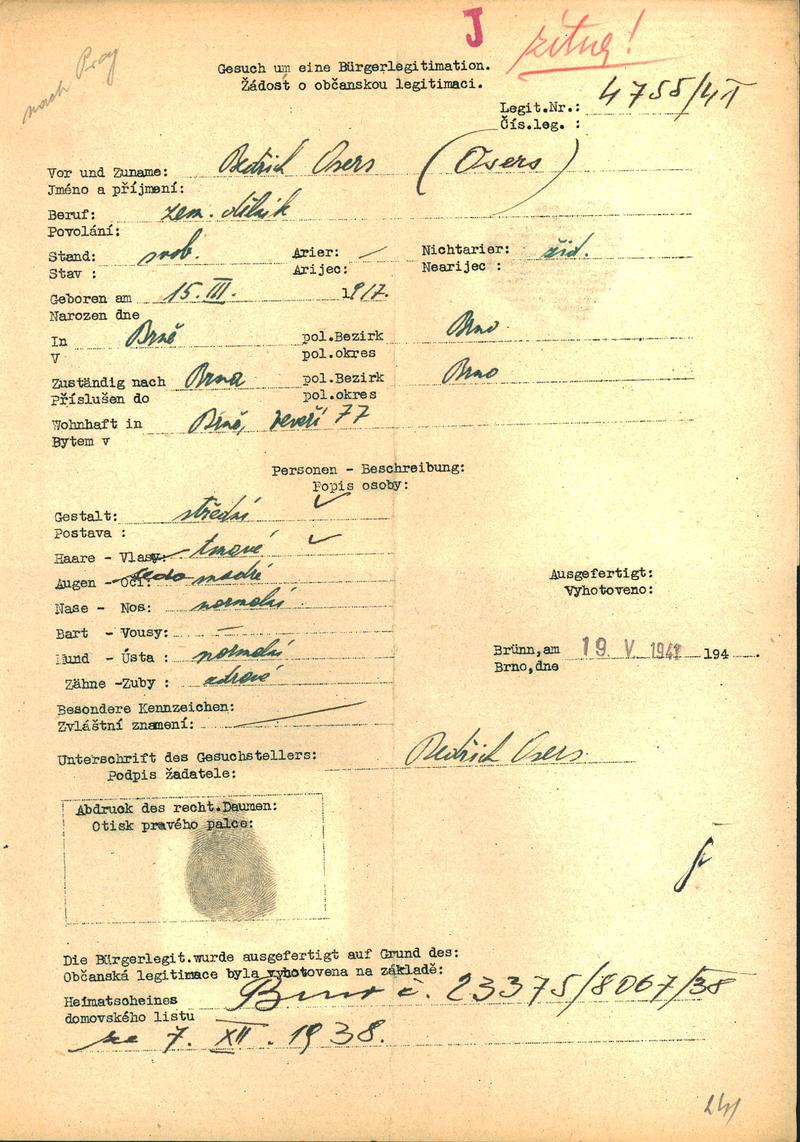 J
nach Prag
Gesuch um eine Bürgerlegitimation.
Žádost o občanskou legitimaci.
Legit.Nr.: 4755/41
Čís.leg. :
Vor und Zuname: Bedřich Osers (Osers)
Jméno a příjmení:
Beruf: zem. dělník
Povolání:
Stand: svob. Arier: — Nichtarier: žid.
Stav : Arijec: Nearijec :
Geboren am 15. III. 1917.
Narozen dne
In Brně pol.Bezirk Brno
V pol.okres
Zuständig nach Brna pol.Bezirk Brno
Příslušen do pol.okres
Wohnhaft in Brně, Veveří 77
Bytem v
Personen - Beschreibung:
Popis osoby:
Gestalt: střední
Postava :
Haare - Vlasy: tmavé
Augen - Oči: modré
Nase - Nos: normální
Bart - Vousy: —
Mund - Ústa : normální
Zähne -Zuby : zdravé
Ausgefertigt:
Vyhotoveno:
Brünn,am 19. V. 1941 194 .
Brno,dne
Besondere Kennzeichen:
Zvláštní znamení:
Unterschrift des Gesuchstellers: Bedřich Osers
Podpis žadatele:
Abdruck des recht.Daumen:
Otisk pravého palce:
Die Bürgerlegit.wurde ausgefertigt auf Grund des:
Občanská legitimace byla vyhotovena na základě:
Heimatscheines Brno č. 23375/8067/38
domovského listu
ze 7. XII. 1938.